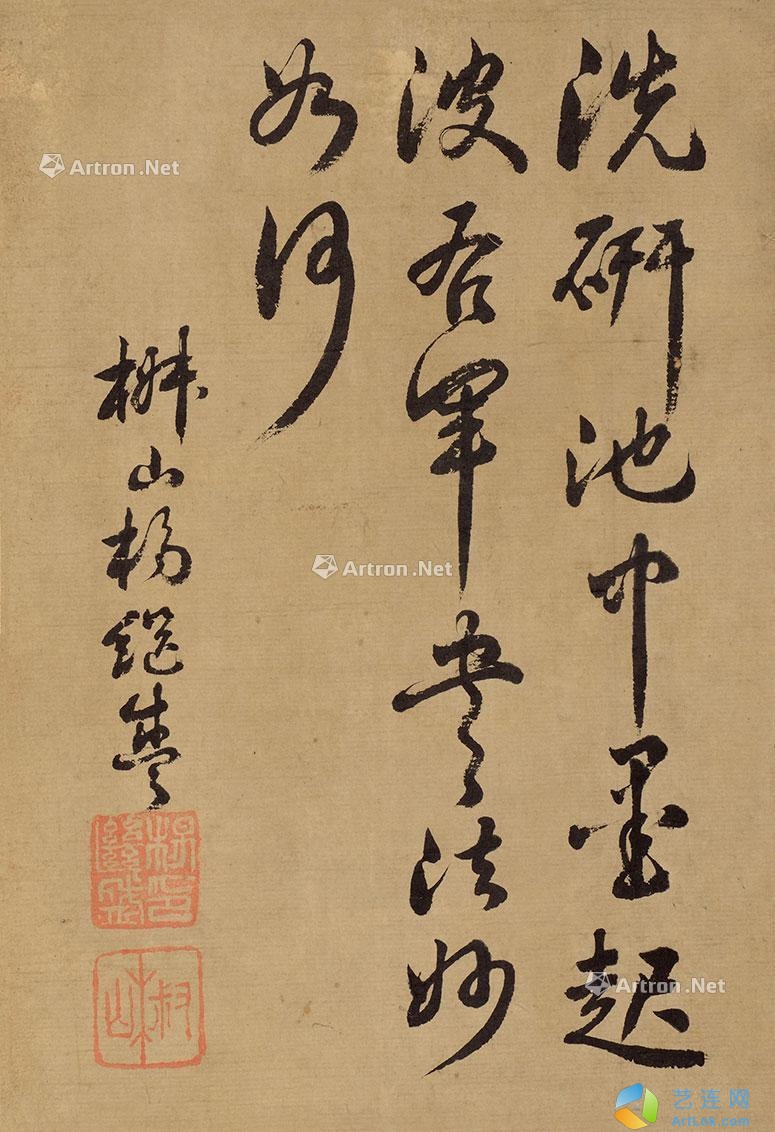 洗研池中墨起
波右軍書法妙
如何
椒山楊繼盛
楊印繼盛
Artron.Net
Artron.Net
Artron.Net
艺连网
ArtLink.com